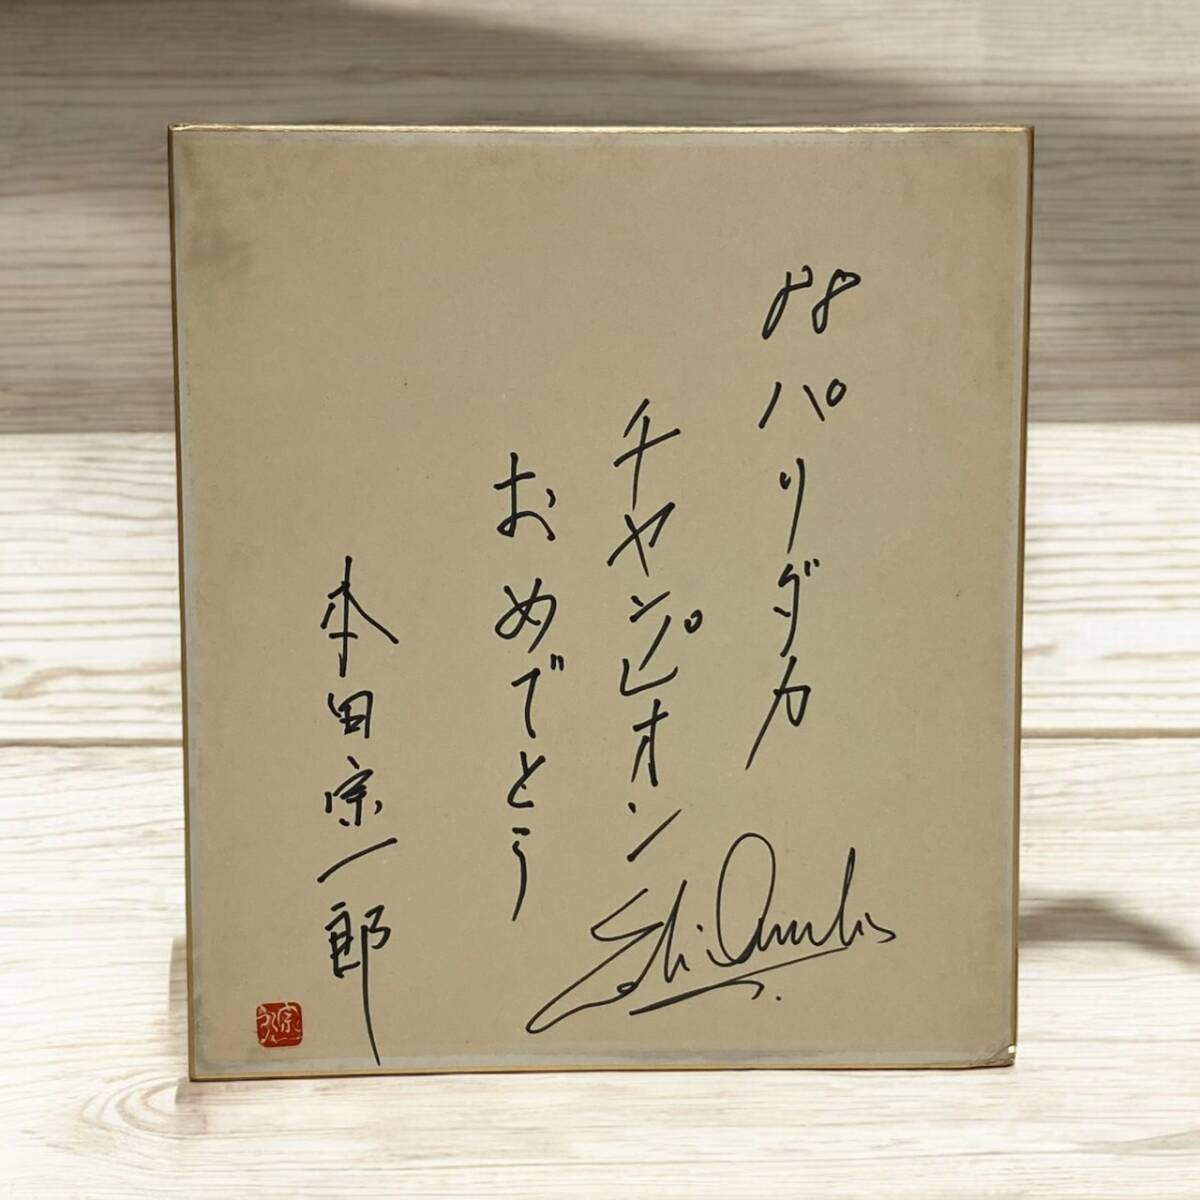 88パリダカ
チャンピオン
おめでとう
本田宗一郎